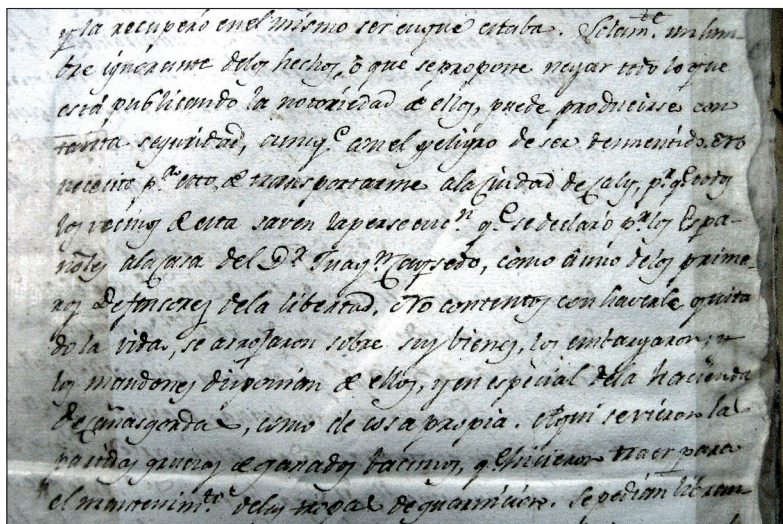 y la recuperó en el mismo ser en que estaba. Solam.te un hom
bre ignorante delos hechos, ò que se propone negar todo lo que
está publicando la notoriedad de ellos, puede producirse con
tanta seguridad, aunq.e con el peligro de ser desmentido. No
necesito p.a esto, de transportarme ala Ciudad de Caly, p.r q.e todos
los vecinos de esta saven la persecuc.n q.e se declaró p.r los Espa-
ñoles ala casa del D.r Juaq.n Cayzedo, como à uno delos prime-
ros Defensores dela libertad. No contentos con haverle quita
do la vida, se arrojaron sobre sus bienes, los embargaron, y
los mandones disponian de ellos, y en especial dela hacienda
de Cañasgordas, como de cosa propia. Aqui se vieron las
partidas gruesas de ganados bacunos, q.e hicieron traer para
el mantenim.to delas tropas de guarnicion. Se pedian libran